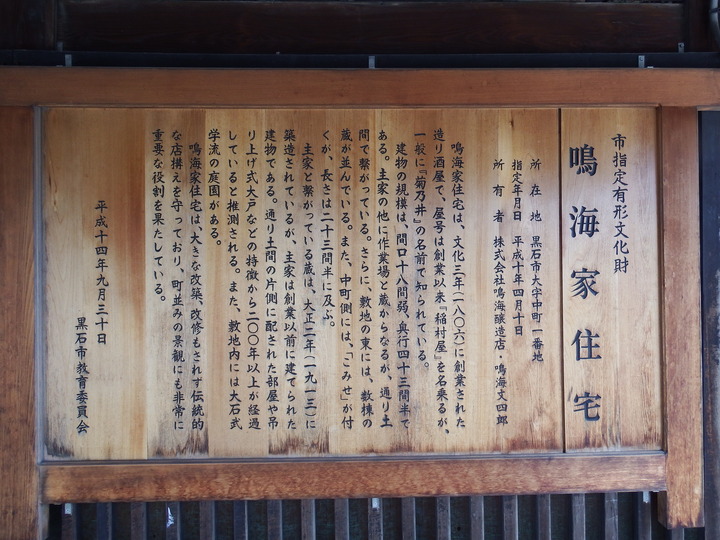 市指定有形文化財
鳴海家住宅
所在地 黒石市大字中町一番地
指定年月日 平成十年四月十日
所有者 株式会社鳴海醸造店・鳴海文四郎
鳴海家住宅は、文化三年(一八〇六)に創業された
造り酒屋で、屋号は創業以来『稲村屋』を名乗るが、
一般に『菊乃井』の名前で知られている。
建物の規模は、間口十八間弱、奥行四十三間半で
ある。主家の他に作業場と蔵からなるが、通り土
間で繋がっている。さらに、敷地の東には、数棟の
蔵が並んでいる。また、中町側には、「こみせ」が付
くが、長さは二十三間半に及ぶ。
主家と繋がっている蔵は、大正二年(一九一三)に
築造されているが、主家は創業以前に建てられた
建物である。通り土間の片側に配された部屋や吊
り上げ式大戸などの特徴から二〇〇年以上が経過
していると推測される。また、敷地内には大石武
学流の庭園がある。
鳴海家住宅は、大きな改築、改修もされず伝統的
な店構えを守っており、町並みの景観にも非常に
重要な役割を果たしている。
平成十四年九月三十日
黒石市教育委員会